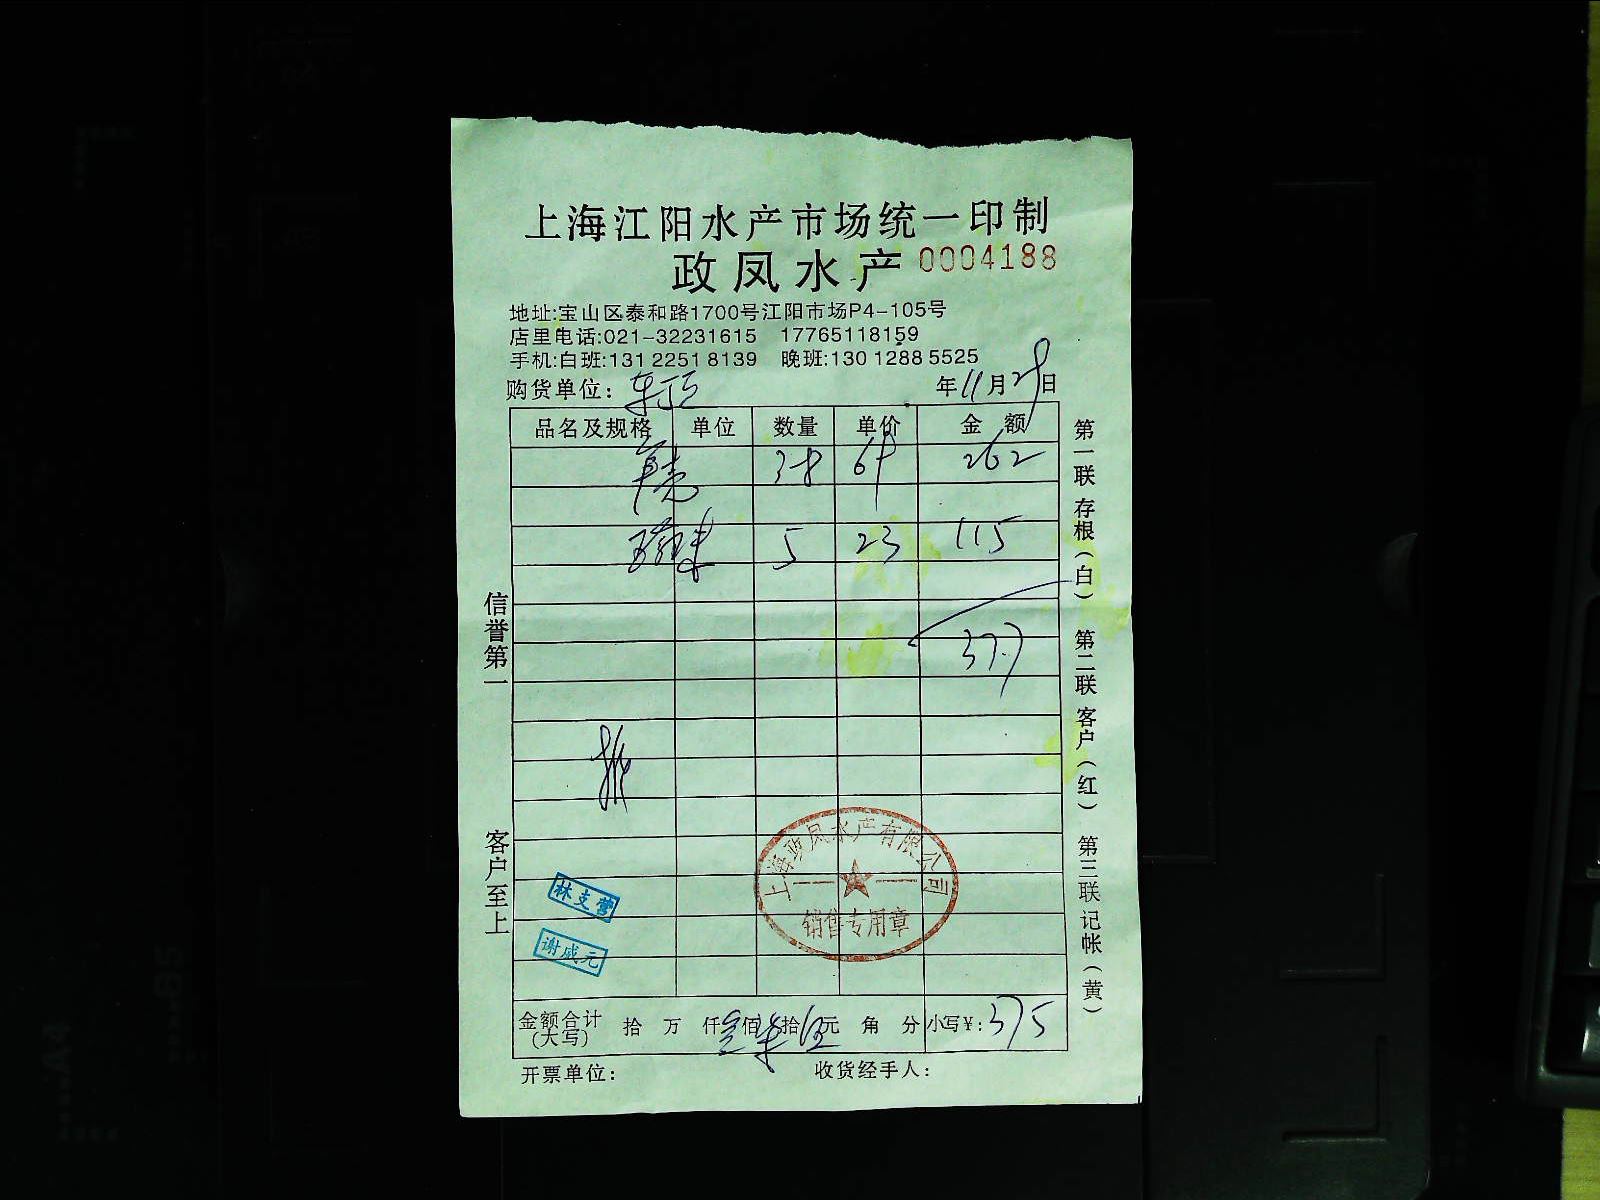 上海江阳水产市场统一印制
政凤水产 0004188
地址:宝山区泰和路1700号江阳市场P4-105号
店里电话:021-32231615 17765118159
手机:白班:131 2251 8139 晚班:130 1288 5525
购货单位: 年11月29日
品名及规格 单位 数量 单价 金额
38 262
5 23 115
377
信誉第一
客户至上
第一联存根(白) 第二联客户(红) 第三联记帐(黄)
上海政凤水产有限公司
销售专用章
林支营
谢成元
金额合计(大写) 拾 万 仟叁佰柒拾伍元 角 分 小写¥:375
开票单位: 收货经手人: